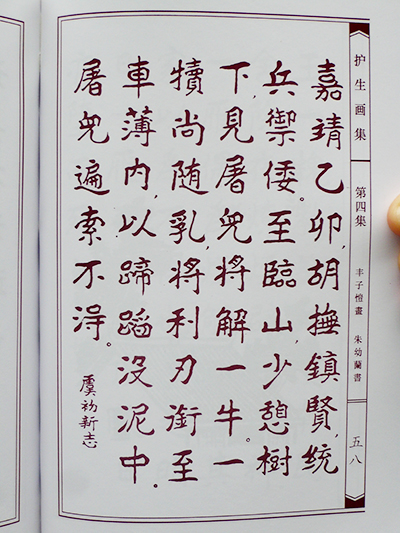 嘉靖乙卯,胡撫鎮賢,統
兵禦倭。至臨山,少憩樹
下,見屠兇將解一牛。一
犢尚随乳,將利刃銜至
車薄内,以蹄蹈没泥中,
屠兇遍索不得。
虞初新志
护生画集
第四集
丰子愷畫 朱幼蘭書
五八